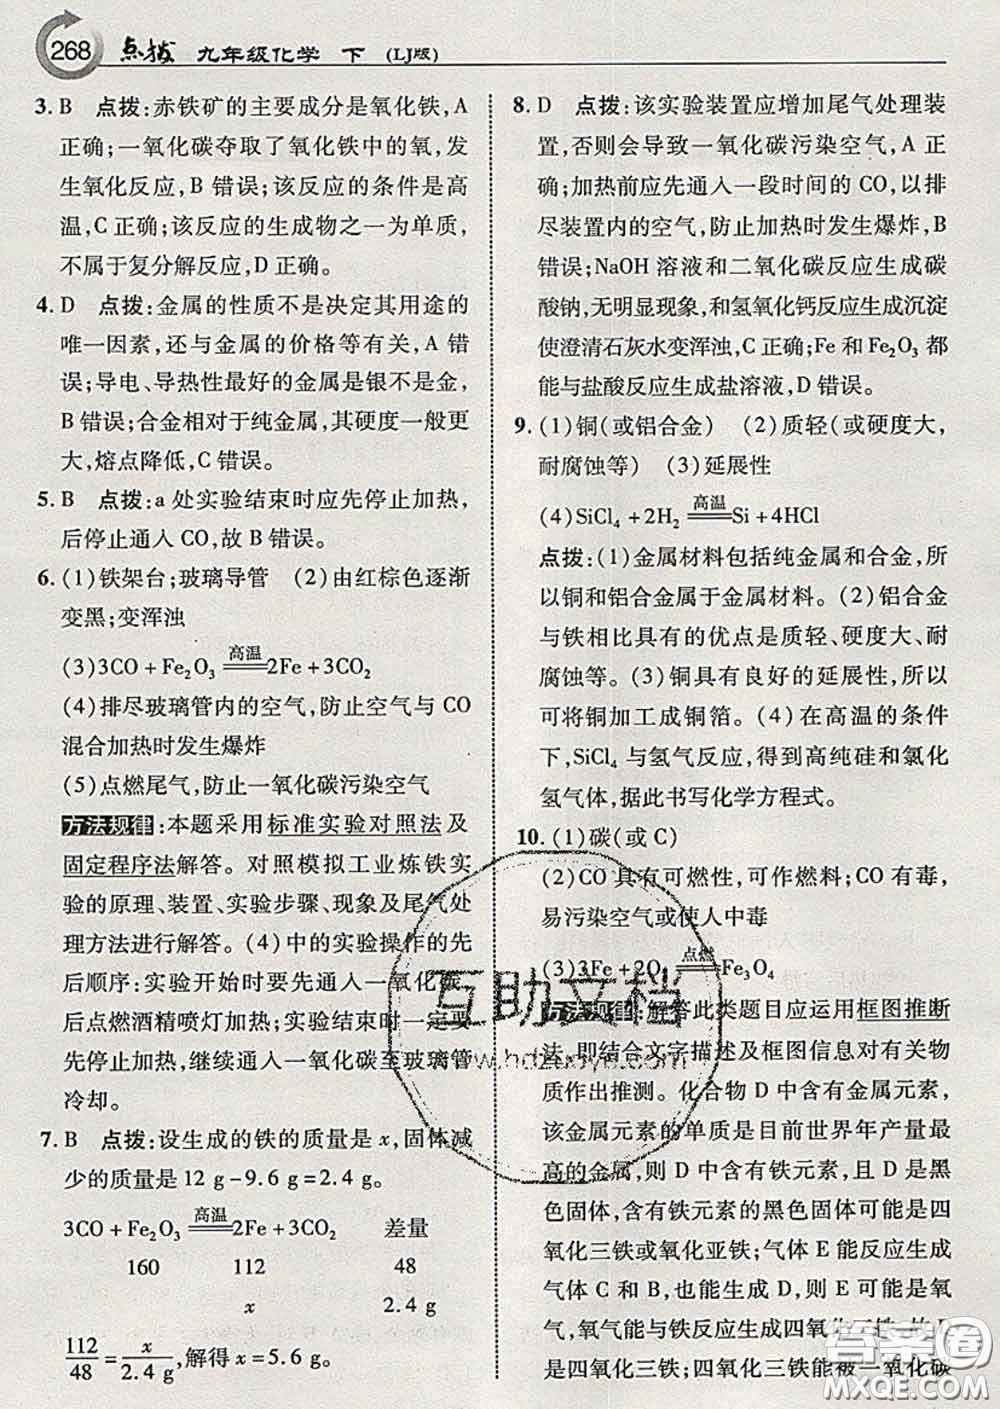 268 点拨 九年级化学 下 (LJ版)
3. B 点拨:赤铁矿的主要成分是氧化铁,A
正确;一氧化碳夺取了氧化铁中的氧,发
生氧化反应,B 错误;该反应的条件是高
温,C 正确;该反应的生成物之一为单质,
不属于复分解反应,D 正确。
4. D 点拨:金属的性质不是决定其用途的
唯一因素,还与金属的价格等有关,A 错
误;导电、导热性最好的金属是银不是金,
B 错误;合金相对于纯金属,其硬度一般更
大,熔点降低,C 错误。
5. B 点拨:a 处实验结束时应先停止加热,
后停止通入 CO,故 B 错误。
6. (1)铁架台;玻璃导管 (2)由红棕色逐渐
变黑;变浑浊
(3)3CO + Fe₂O₃ 高温 2Fe + 3CO₂
(4)排尽玻璃管内的空气,防止空气与 CO
混合加热时发生爆炸
(5)点燃尾气,防止一氧化碳污染空气
方法规律:本题采用标准实验对照法及
固定程序法解答。对照模拟工业炼铁实
验的原理、装置、实验步骤、现象及尾气处
理方法进行解答。(4)中的实验操作的先
后顺序:实验开始时要先通入一氧化碳,
后点燃酒精喷灯加热;实验结束时一定要
先停止加热,继续通入一氧化碳至玻璃管
冷却。
7. B 点拨:设生成的铁的质量是 x,固体减
少的质量是 12 g - 9.6 g = 2.4 g。
3CO + Fe₂O₃ 高温 2Fe + 3CO₂ 差量
160 112 48
x 2.4 g
112/48 = x/2.4 g,解得 x = 5.6 g。
8. D 点拨:该实验装置应增加尾气处理装
置,否则会导致一氧化碳污染空气,A 正
确;加热前应先通入一段时间的 CO,以排
尽装置内的空气,防止加热时发生爆炸,B
错误;NaOH 溶液和二氧化碳反应生成碳
酸钠,无明显现象,和氢氧化钙反应生成沉淀
使澄清石灰水变浑浊,C 正确;Fe 和 Fe₂O₃ 都
能与盐酸反应生成盐溶液,D 错误。
9. (1)铜(或铝合金) (2)质轻(或硬度大,
耐腐蚀等) (3)延展性
(4)SiCl₄ + 2H₂ 高温 Si + 4HCl
点拨:(1)金属材料包括纯金属和合金,所
以铜和铝合金属于金属材料。(2)铝合金
与铁相比具有的优点是质轻、硬度大、耐
腐蚀等。(3)铜具有良好的延展性,所以
可将铜加工成铜箔。(4)在高温的条件
下,SiCl₄ 与氢气反应,得到高纯硅和氯化
氢气体,据此书写化学方程式。
10. (1)碳(或 C)
(2)CO 具有可燃性,可作燃料;CO 有毒,
易污染空气或使人中毒
(3)3Fe + 2O₂ 点燃 Fe₃O₄
方法规律:解答此类题目应运用框图推断
法,即结合文字描述及框图信息对有关物
质作出推测。化合物 D 中含有金属元素,
该金属元素的单质是目前世界年产量最
高的金属,则 D 中含有铁元素,且为黑色
固体,含有铁元素的黑色固体可能是四
氧化三铁或氧化亚铁;气体 E 能反应生成
气体 C 和 B,也能生成 D,则 E 可能是氧
气,氧气能与铁反应生成四氧化三铁,故 D
是四氧化三铁;四氧化三铁能被一氧化碳
互助文档
www.hdzuoye.com
答案圈
MXQE.COM